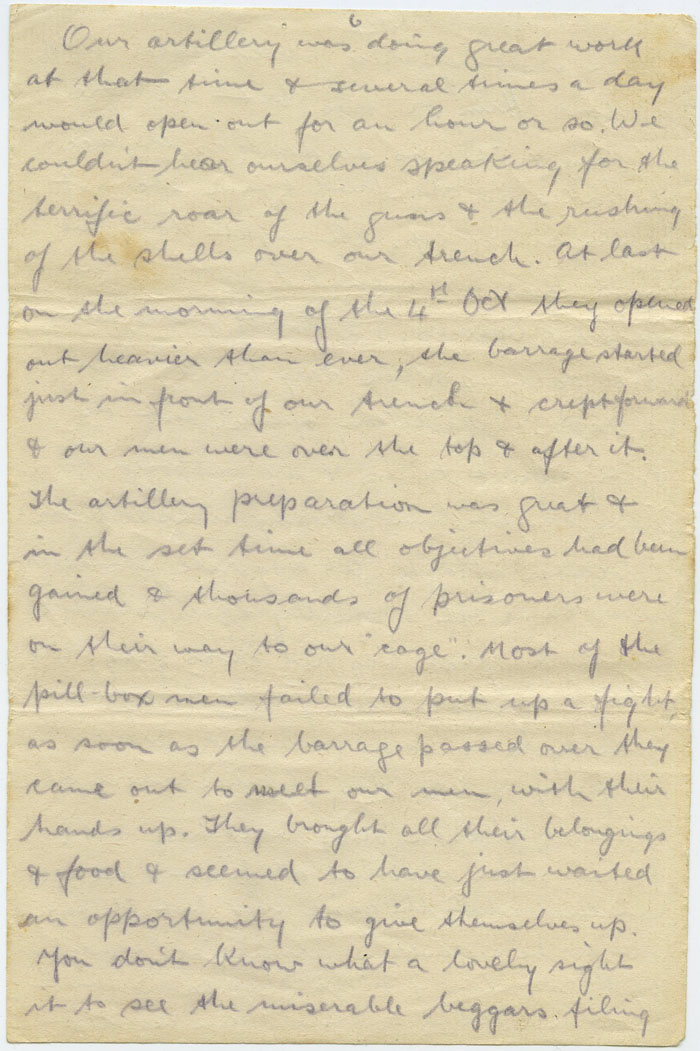 6
Our artillery was doing great work
at that time & several times a day
would open out for an hour or so. We
couldn't hear ourselves speaking for the
terrific roar of the guns & the rushing
of the shells over our trench. At last
on the morning of the 4st Oct they opened
out heavier than ever, the barrage started
just in front of our trench & crept forward
& our men were over the top & after it.
The artillery preparation was great &
in the set time all objectives had been
gained & thousands of prisoners were
on their way to our "cage". Most of the
pill-box men failed to put up a fight,
as soon as the barrage passed over they
came out to meet our men, with their
hands up. They brought all their belongings
& food & seemed to have just waited
an opportunity to give themselves up.
You don't know what a lovely sight
it to see the miserable beggars filing